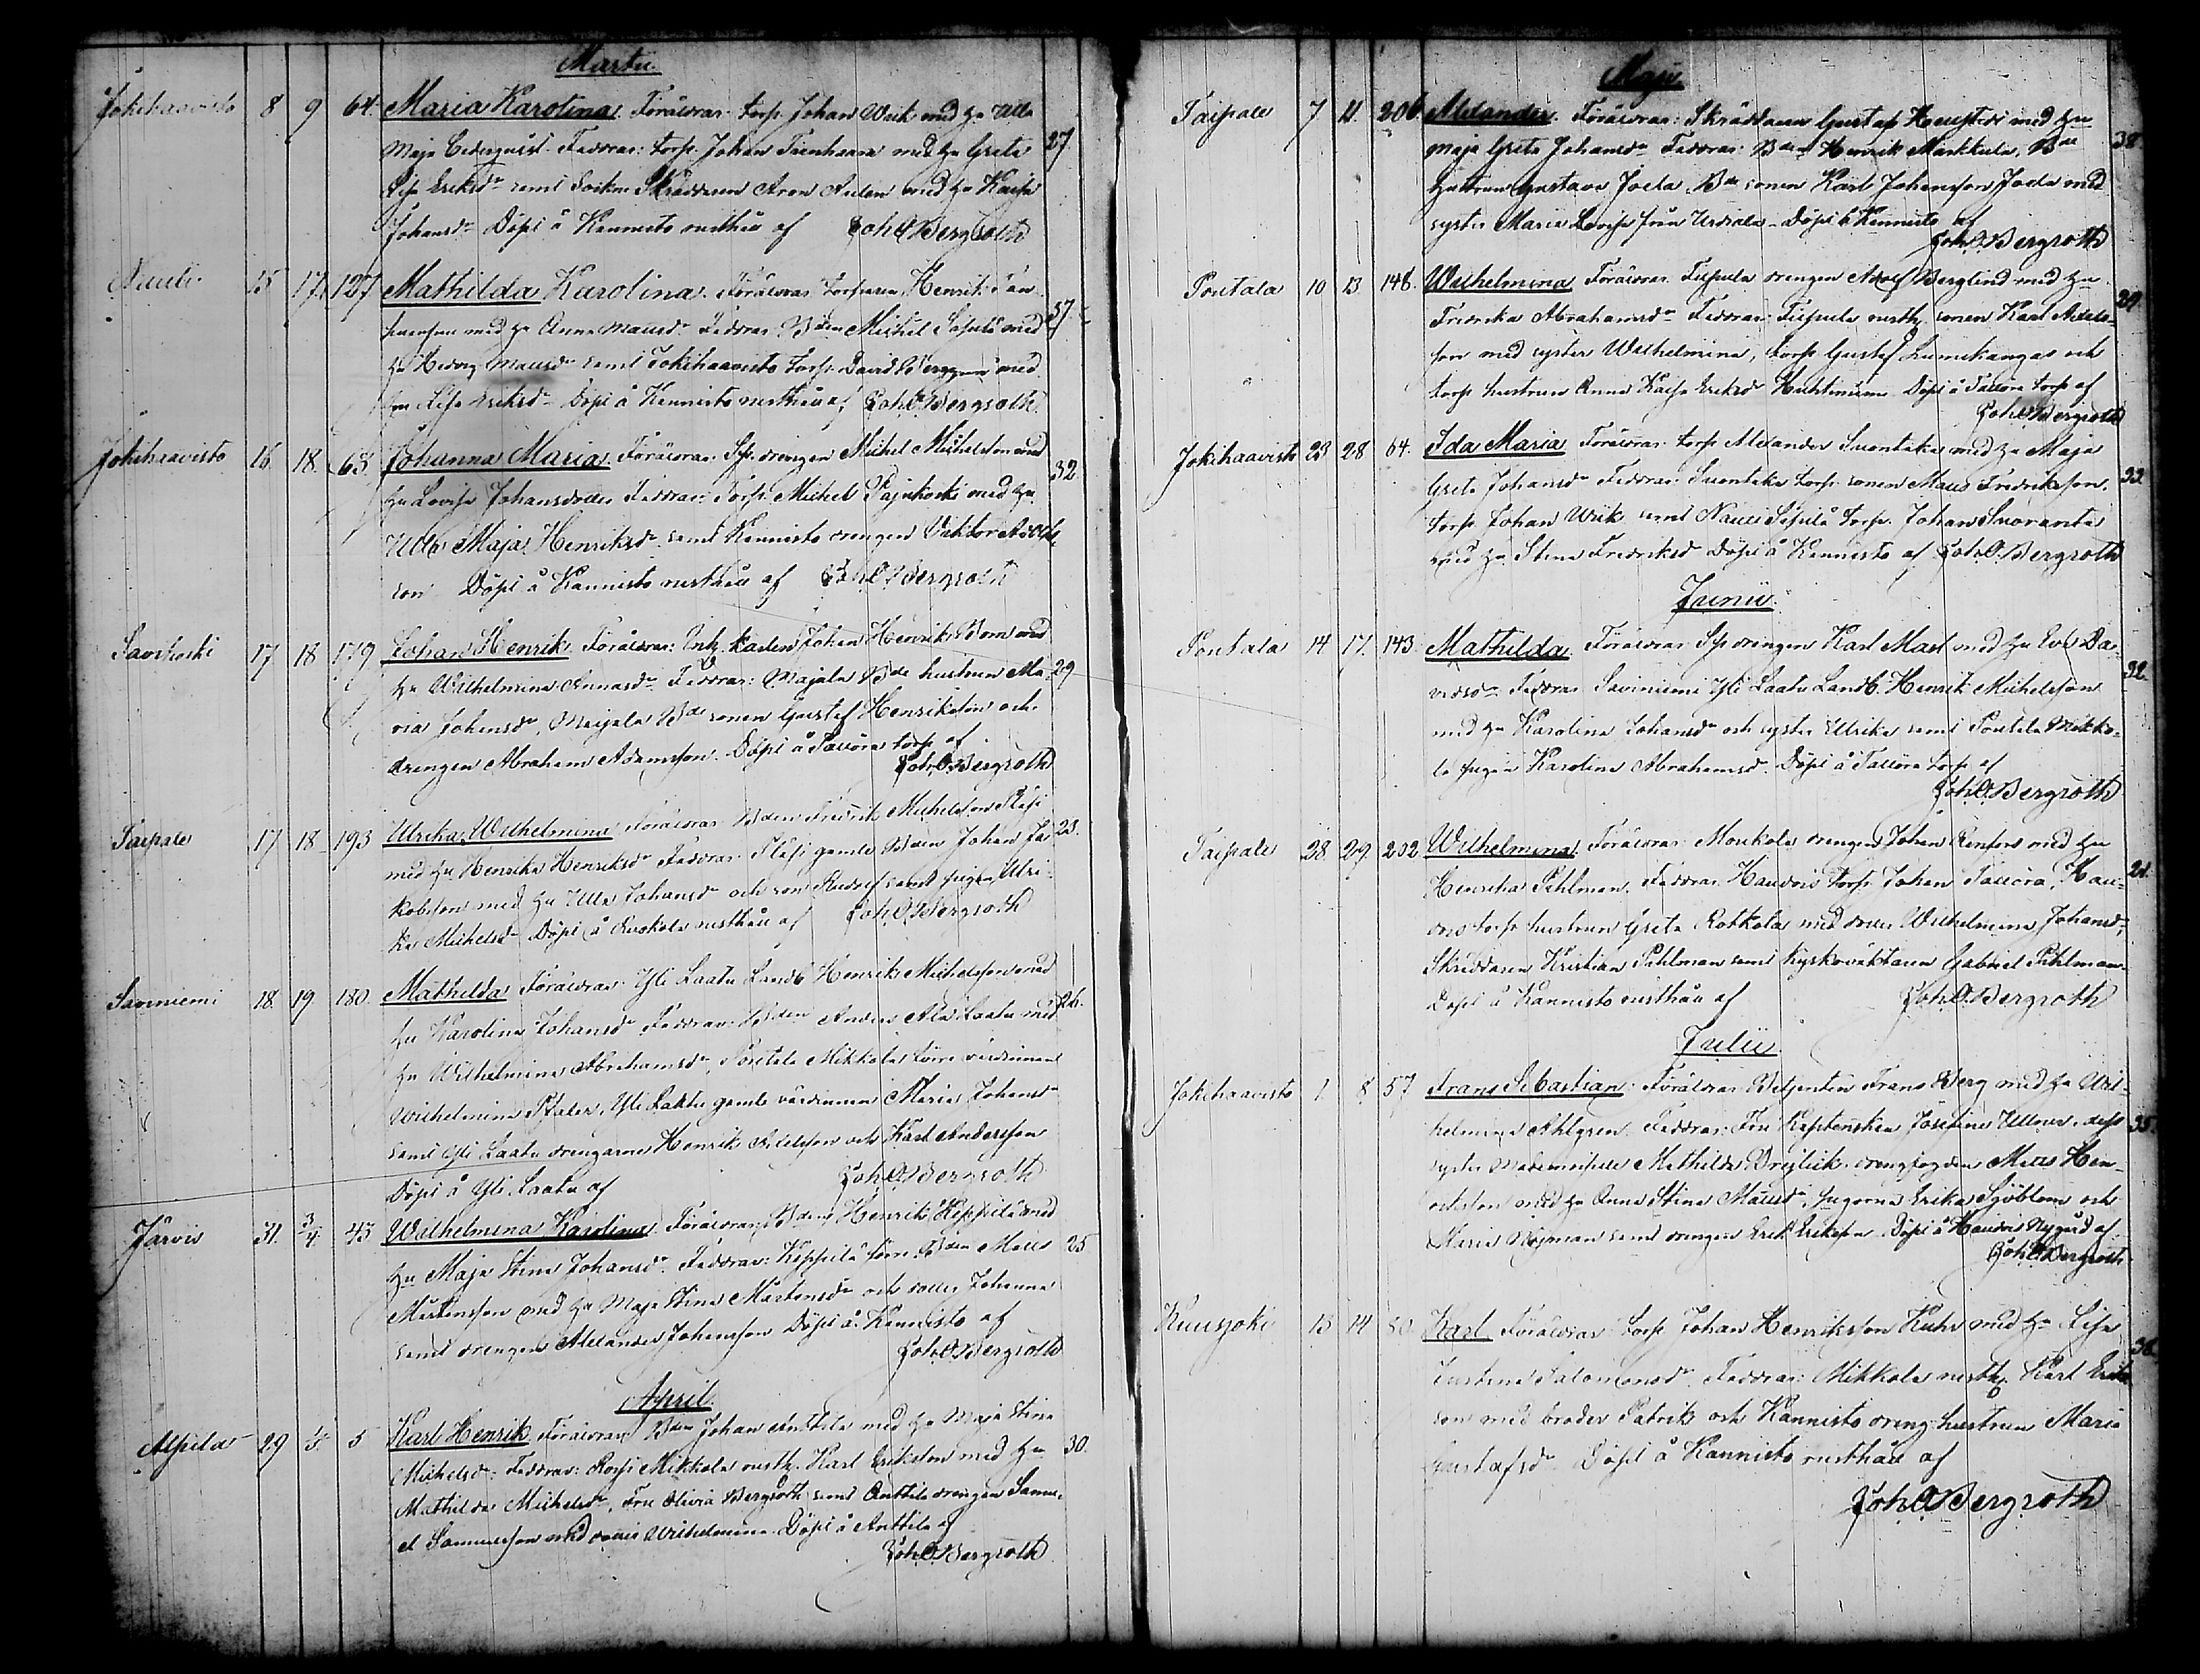 Martii.
Jokihaavisto 8 9 64. Maria Karolina. Föräldrar: torp. Johan Wiik med hu Ulla
Maja Cederquist. Faddrar: torp. Johan med hu Greta 27.
Lisa Eriksdr samt Sockne Skräddaren Aron med hu Kaisa
Johansdr Döpt å Kannisto rusthåll af Joh. O. Bergroth
Nauli 15 17 127 Mathilda Karolina. Föräldrar: torparen Henrik
med hu Anna Mausdr Faddrar: Bden Michel Sipilä med 37
hu Hedvig Mausdr samt Jokihaavisto torp. David Berggren med
hu Lisa Eriksdr Döpt å Kannisto rusthåll af Joh. O. Bergroth.
Jokihaavisto 16. 18. 63 Johanna Maria. Föräldrar: Sp. drengen Michel Michelsson med 32.
hu Lovisa Johansdotter Faddrar: Torp. Michel Pajukoski med hu
Ulla Maja Henriksdr samt Kannisto drengen Viktor Adolfs
son Döpt å Kannisto rusthåll af Joh. O. Bergroth
Savikoski 17 18 179 Johan Henrik. Föräldrar: Enk. karlen Johan Henrik Blom med
hu Wilhelmina Annasdr Faddrar: Maijala Bde hustrun Ma- 29
ria Johansdr, Maijala Bde sonen Gustaf Henriksson och
drengen Abraham Adamsson. Döpt å Tallöra torp af
Joh. O. Bergroth
Taipale 17 18 193 Ulrika Wilhelmina. Föräldrar: Bden Fredrik Michelsson Pläsi 23.
med hu Henrika Henriksdr Faddrar: Pläsi gamle Bden Johan Ja-
kobsson med hu Ulla Johansdr och son Rudolf samt pigan Ulri-
ka Michelsdr Döpt å rusthåll af Joh. O. Bergroth
Saviniemi 18. 19. 180. Mathilda. Föräldrar: Yli Laatu Landb. Henrik Michelsson med
hu Karolina Johansdr Faddrar: Bden Anders Ala Laatu med 26.
hu Wilhelmina Abrahamsdr, Pontela Mikkola förre värdinnan
Wilhelmina, Yli Laatu gamle värdinnan Maria Johansdr
samt Yli Laatu drengarne Henrik och Karl Andersson
Döpt å Yli Laatu af Joh. O. Bergroth
Järvis 31. 3/4. 43 Wilhelmina Karolina. Föräldrar: Bden Henrik Keppilä med 25
hu Maja Stina Johansdr. Faddrar: Keppilä förre Bden Matts
Mårtensson med hu Maja Stina Mårtensdr och dotter Johanna
samt drengen Alexander Johansson Döpt å Kannisto af
Joh. O. Bergroth
April.
Alpila 29 1/5 5 Karl Henrik. Föräldrar: Bden Johan Anttila med hu Maja Stina
Michelsdr. Faddrar: Mikkola rusth. Karl Eriksson med hu 30.
Mathilda Michelsdr, Fru Olivia Bergroth, samt Anttila drengen Samu-
el Samuelsson med Wilhelmina. Döpt å Anttila af
Joh. O. Bergroth
Maji
Taipale 7 11. 206. Alexander. Föräldrar: Skräddaren Gustaf med hu
Maja Greta Johansdr Faddrar: Bden Henrik Markkula, Bde 38.
hustrun Gustava Joela, Bde sonen Karl Johansson Joela med
syster Maria från Urdiala. Döpt å Kannisto af
Joh. O. Bergroth
Pontala 10 13 146. Wilhelmina. Föräldrar: drengen Adolf Berglund med hu
Fredrika Abrahamsdr Faddrar: rusth. sonen Karl 29.
son med syster Wilhelmina, torp. Gustaf Lumikangas och
torp. hustrun Anna Kaisa Eriksdr Döpt å Tallöra torp af
Joh. O. Bergroth
Jokihaavisto 23 28 64. Ida Maria. Föräldrar: torp. Alexander Suontaka med hu Maja
Greta Johansdr Faddrar: Suontaka torp. sonen Maus Fredriksson, 33.
torp. Johan Wiik samt Nauli Sipilä torp. Johan Suoranta
med hu Stina Fredriksdr Döpt å Kannisto af Joh. O. Bergroth
Junii.
Pontala 14 17. 143. Mathilda. Föräldrar: Sp. drengen Karl Mast med hu Eva Da-
vidsdr Faddrar: Saviniemi Yli Laatu Landb. Henrik Michelsson 32.
med hu Karolina Johansdr och syster Ulrika samt Pontela Mikko-
la pigan Karolina Abrahamsd. Döpt å Tallöra torp af
Joh. O. Bergroth
Taipale 28 29. 202 Wilhelmina. Föräldrar: drengen Johan Renfors med hu
Henrika Pihlman. Faddrar: Haudois torp. Johan Tallöra, Hau- 21.
dois torp. hustrun Greta Rotkola med dotter Wilhelmina Johansdr,
Skräddaren Kristian Pihlman samt Kyrkovaktaren Gabriel Pihlman.
Döpt å Kannisto rusthåll af Joh. O. Bergroth
Julii.
Jokihaavisto 1 8 57 Frans Sebastian. Föräldrar: Betjenten Frans Berg med hu Wil-
helmina Ahlgren. Faddrar: Fru Kaptenskan Josefina Ullner, dess 35.
syster Mademoiselle Mathilda, drengfogden Matts Hen-
riksson med hu Anna Stina Mausdr, pigorna Erika Sjöblom och
Maria Nyman samt drengen Erik Eriksson. Döpt å Haudois Nygård af
Joh. O. Bergroth
Kuusjoki 13 14 50 Karl. Föräldrar: torp. Johan Henriksson med hu Lisa 38.
Justina Salomonsdr. Faddrar: Mikkola rusth. Karl Eriks
son med broder Patrik och Kannisto dreng hustrun Maria
Gustafsdr Döpt å Kannisto rusthåll af
Joh. O. Bergroth